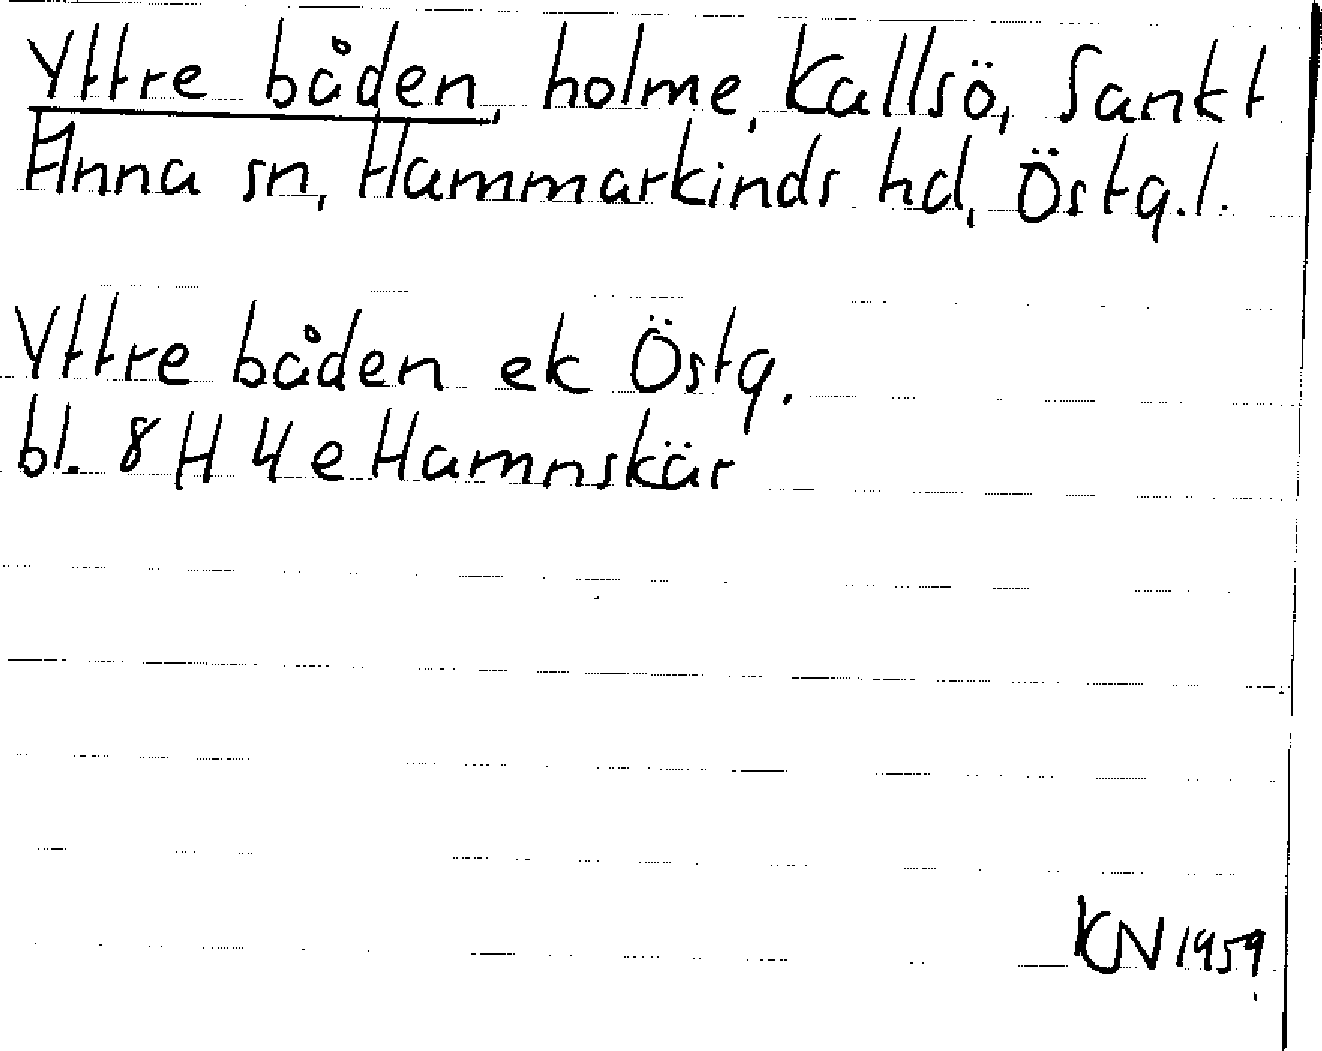 Yttre båden, holme, Kallsö, Sankt
Anna sn, Hammarkinds hd, Östg.l.
Yttre båden ek Östg.
bl. 8 H 4 e Hamnskär
KN 1959